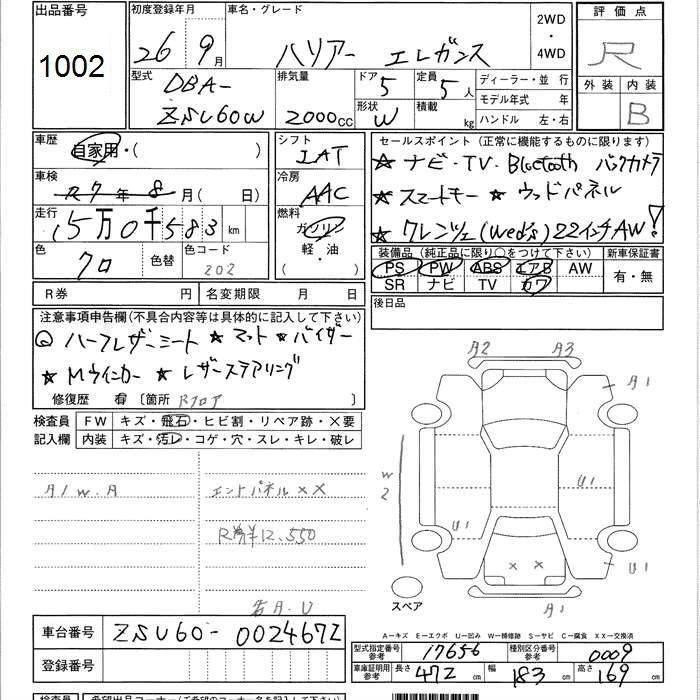 出品番号 初度登録年月 車名・グレード 2WD ・ 4WD 評価点
1002 26 9月 ハリアー エレガンス R
型式 DBA-ZSU60W 排気量 2000cc ドア 5 形状 W 定員 5人 積載 kg ディーラー・並行 モデル年式 年 ハンドル 左・右 外装 内装 B
車歴 自家用・( ) シフト IAT セールスポイント(正常に機能するものに限ります)
車検 R7年8月(日) 冷房 AAC ★ナビ・TV・Bluetooth バックカメラ
★スマートキー ★ウッドパネル
走行 15万0千583km 燃料 ガソリン 軽・油 ( ) ★クレンツェ(Wed's)22インチAW!
色 クロ 色替 色コード 202 装備品(純正品に限り○をつけて下さい) 新車保証書
PS PW ABS エアB AW 有・無
SR ナビ TV カワ
R券 円 名変期限 月 日 後日品
注意事項申告欄(不具合内容等は具体的に記入して下さい)
ハーフレザーシート ★マット★バイザー
★Mウインカー ★レザーステアリング
修復歴 有 〔箇所 Rフロア 〕
検査員 FW キズ・飛石・ヒビ割・リペア跡・×要
記入欄 内装 キズ・汚レ・コゲ・穴・スレ・キレ・破レ
A2 A3
A1
W2
U1
U1 U1
× ×
A1
スペア
A/W.A エンドパネル××
R券¥12.550
若A.U
A－キズ E－エクボ U－凹み W－補修跡 S－サビ C－腐食 XX－交換済
車台番号 ZSU60-0024672 型式指定番号 参考 17656 種別区分番号 参考 0009
登録番号 車庫証明用 参考 長さ 472cm 幅 183cm 高さ 169cm
検査員 希望出品コーナー(ご希望のコーナー名を記入して下さい)